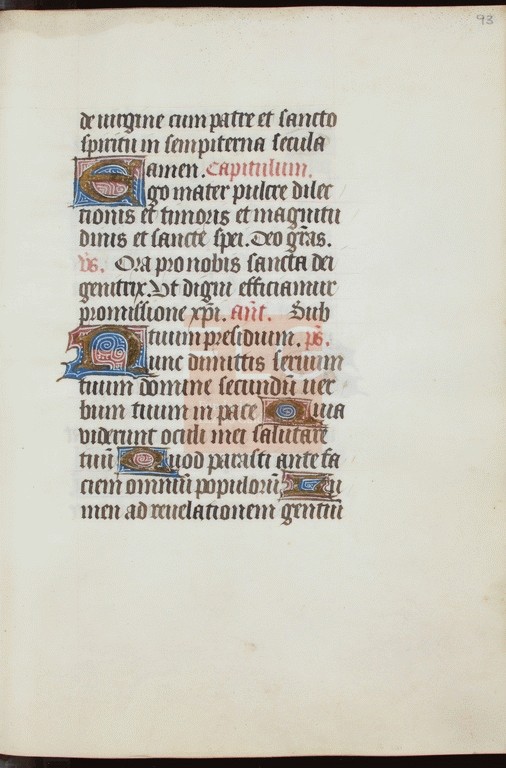 93
de uirgine cum patre et sancto
spiritu in sempiterna secula
amen. Capitulum.
Ego mater pulcre dilec
tionis et timoris et magnitu
dinis et sancte spei. Deo gr̄as.
v̄s. Ora pro nobis sancta dei
genitrix. Vt digni efficiamur
promissione xp̄i. an̄t. Sub
tuum presidium. p̄s.
Nunc dimittis seruum
tuum domine secundū uer
bum tuum in pace Quia
viderunt oculi mei salutare
tuū Quod parasti ante fa
ciem omniū populorū Lu
men ad reuelationem gentiū